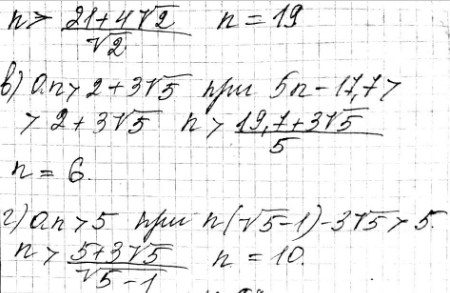 n > (21+4√2)/√2 n = 19
в) an > 2 + 3√5 при 5n - 17,7 >
> 2 + 3√5 n > (19,7+3√5)/5
n = 6.
г) an > 5 при n(√5-1) - 3√5 > 5.
n > (5+3√5)/(√5-1) n = 10.